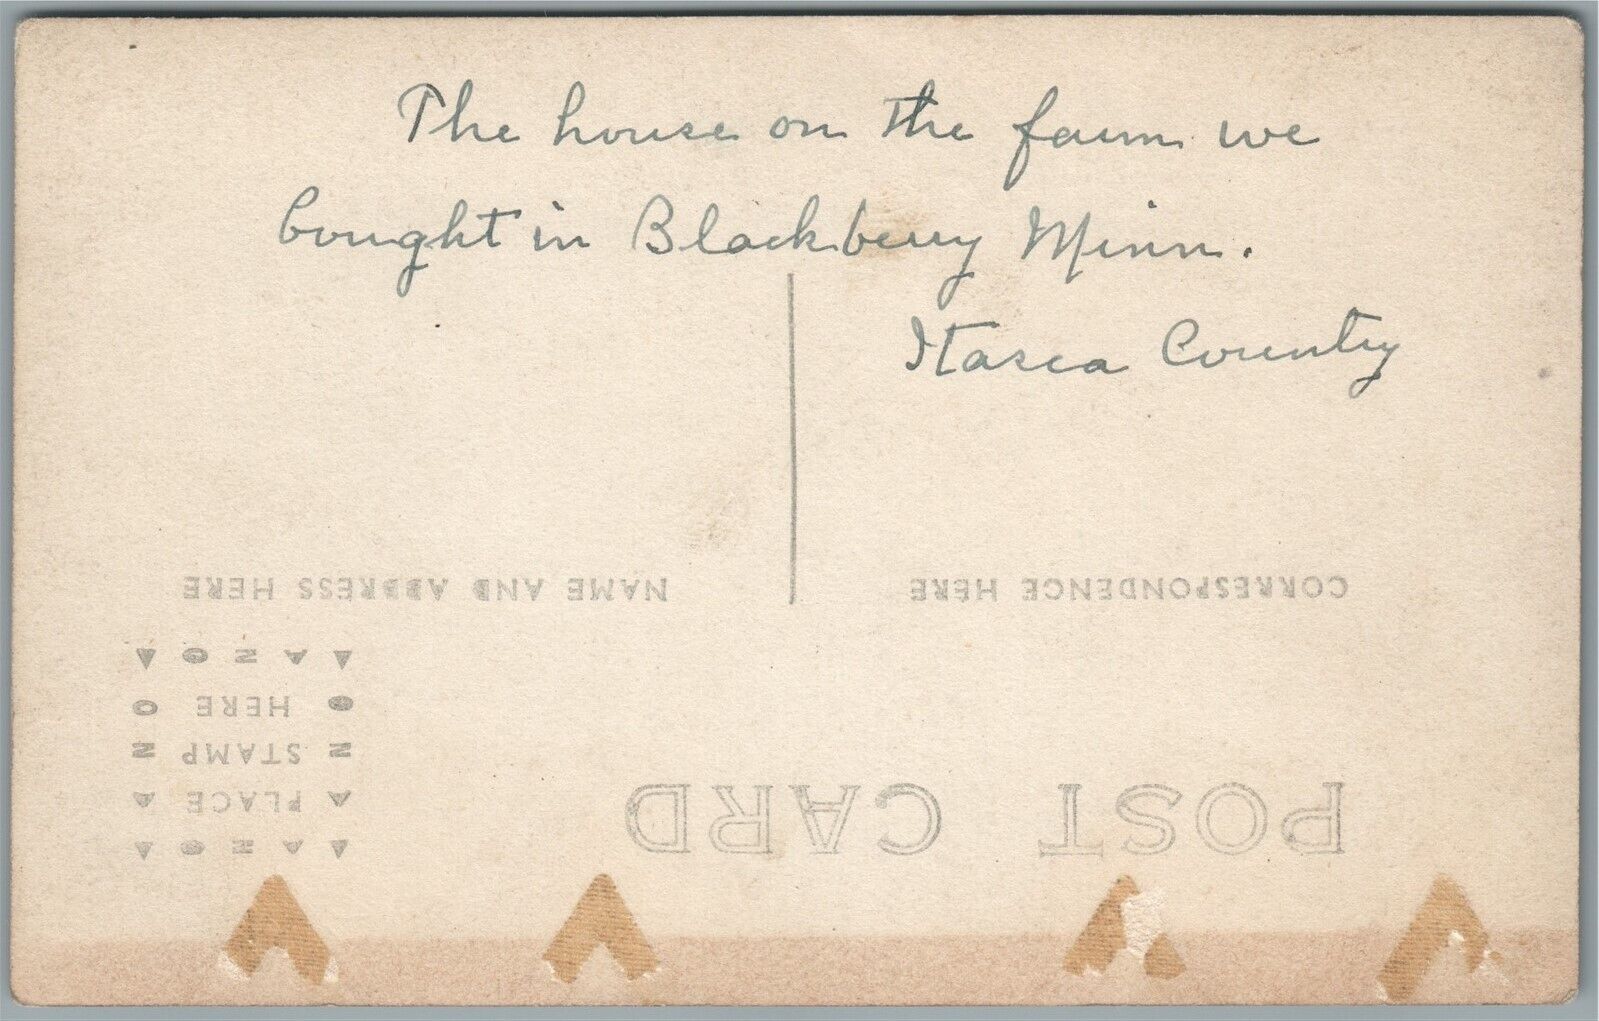 The house on the farm we
bought in Blackberry Minn.
Itasca County
POST CARD
CORRESPONDENCE HERE
NAME AND ADDRESS HERE
▲ A Z O ▲
▲ PLACE ▲
Z STAMP Z
O HERE O
▼ A Z O ▼